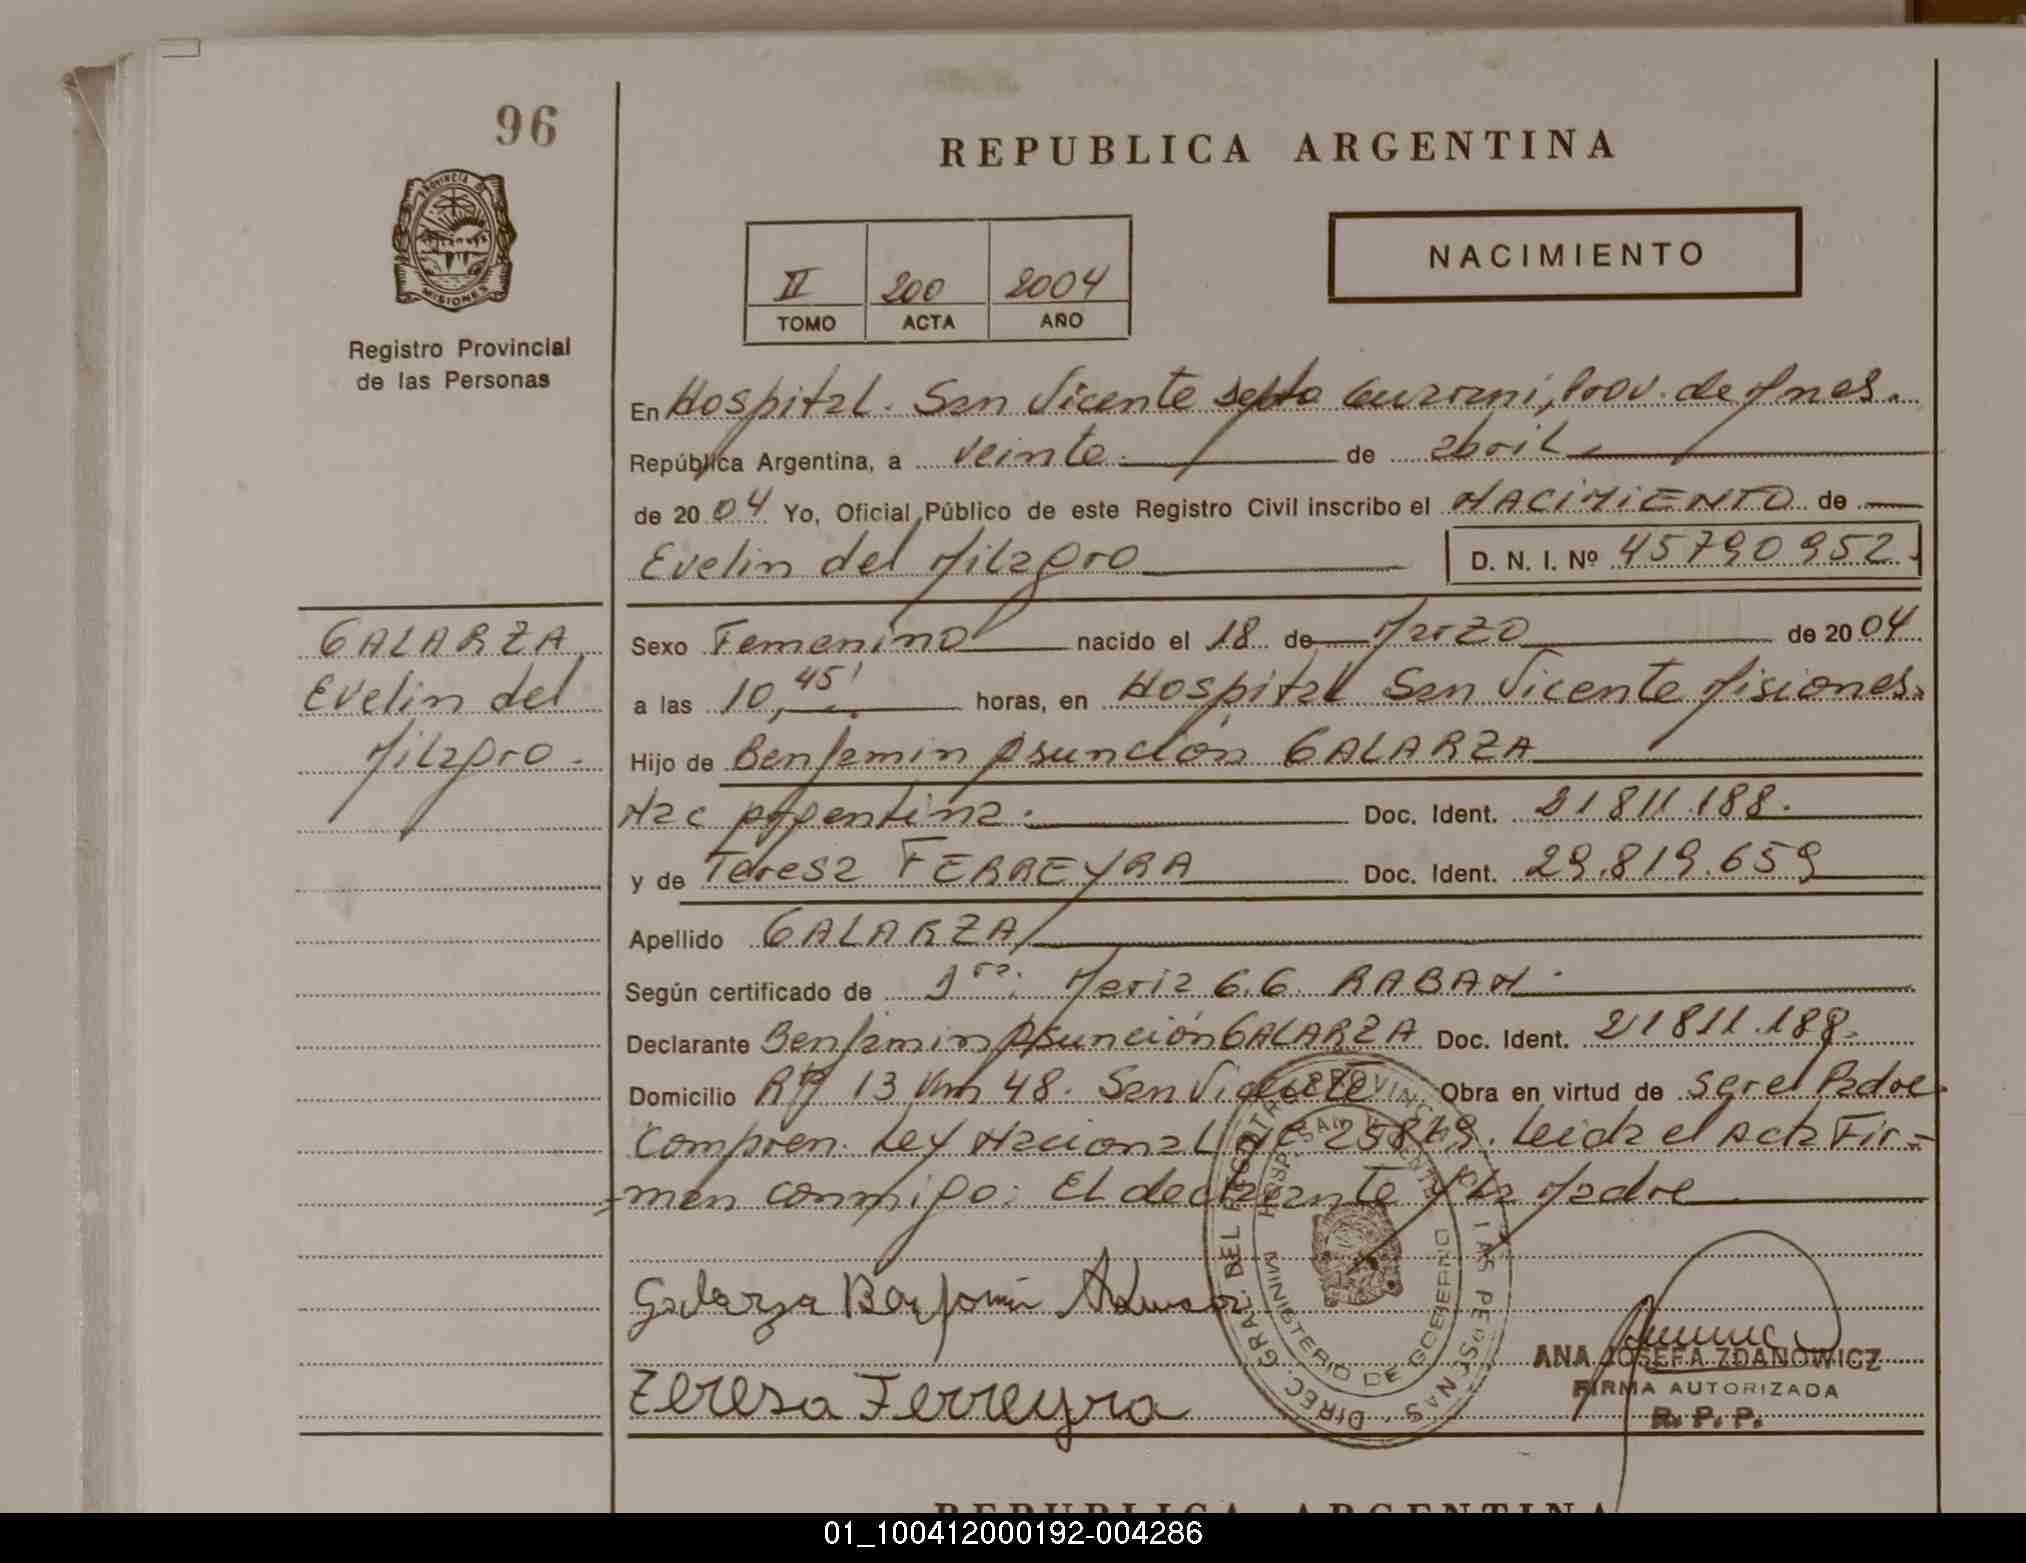 96
REPUBLICA ARGENTINA
PROVINCIA DE
MISIONES
Registro Provincial
de las Personas
NACIMIENTO
II 200 2004
TOMO ACTA AÑO
En Hospital. San Vicente Depto Guarani, Prov. de Mnes.
República Argentina, a veinte. de abril
de 2004 Yo, Oficial Público de este Registro Civil inscribo el NACIMIENTO de
Evelin del Milagro D. N. I. Nº 45790952.
GALARZA
Evelin del
Milagro.
Sexo Femenino nacido el 18 de Marzo de 2004
a las 10,45' horas, en Hospital San Vicente Misiones.
Hijo de Benjamin Asunción GALARZA
Nac Argentina. Doc. Ident. 21811.188.
y de Teresa FERREYRA Doc. Ident. 29.819.659
Apellido GALARZA
Según certificado de Dra. Maria G.G. RABAN.
Declarante Benjamin Asunción GALARZA Doc. Ident. 21811.188.
Domicilio Rta 13 Km 48. San Vicente Obra en virtud de ser el Padre
Compren. Ley Nacional Nº 25819. Leida el Acta Fir=
=man conmigo: El declarante y la Madre
Galarza Benjamin Asuncion
Teresa Ferreyra
DIREC. GRAL. DEL REGISTRO PROVINCIAL DE LAS PERSONAS
HOSP. SAN VICENTE
MINISTERIO DE GOBIERNO
ANA JOSEFA ZDANOWICZ
FIRMA AUTORIZADA
R. P. P.
REPUBLICA ARGENTINA
01_100412000192-004286